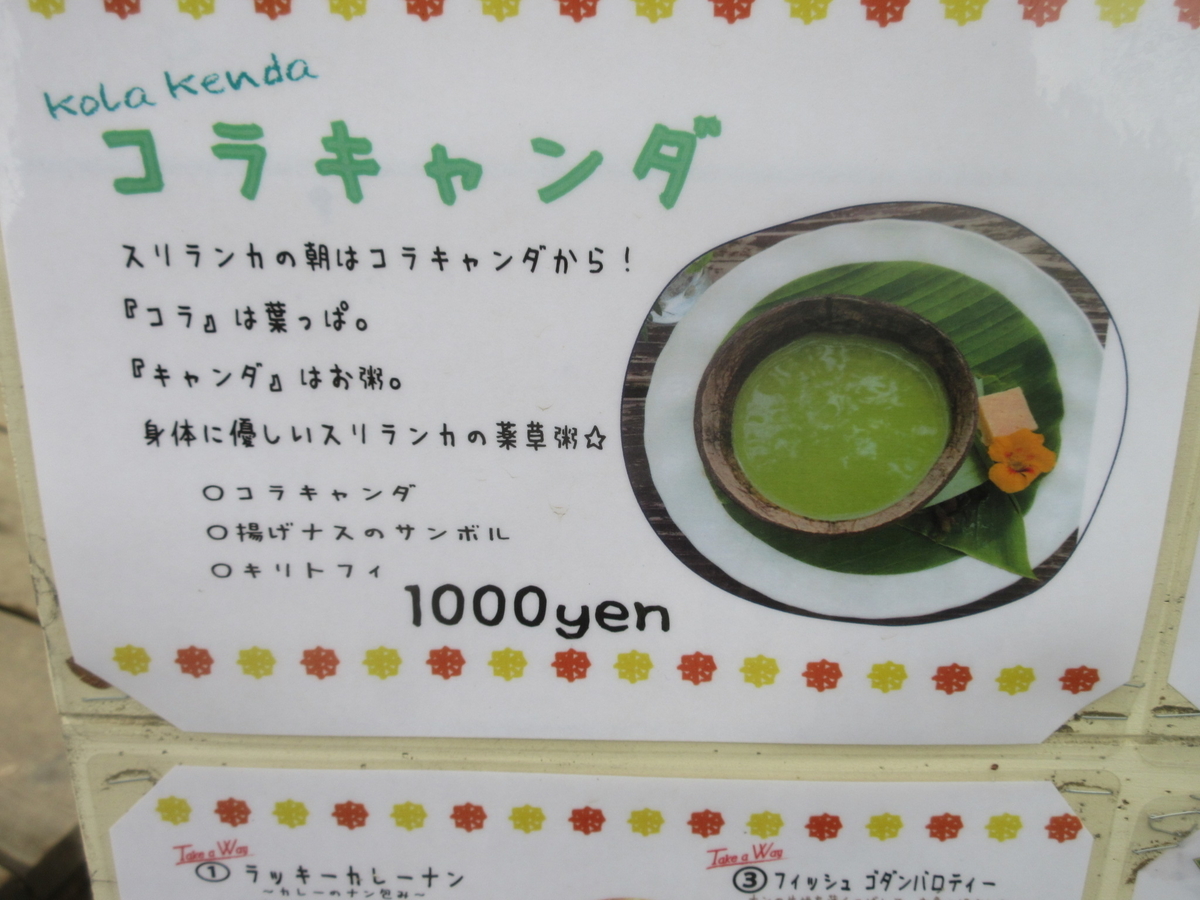 Kola Kenda
コラキャンダ
スリランカの朝はコラキャンダから！
『コラ』は葉っぱ。
『キャンダ』はお粥。
身体に優しいスリランカの薬草粥☆
○コラキャンダ
○揚げナスのサンボル
○キリトフィ
1000yen
Take a Way
① ラッキーカレーナン
～カレーのナン包み～
Take a Way
③フィッシュ ゴダンバロティー